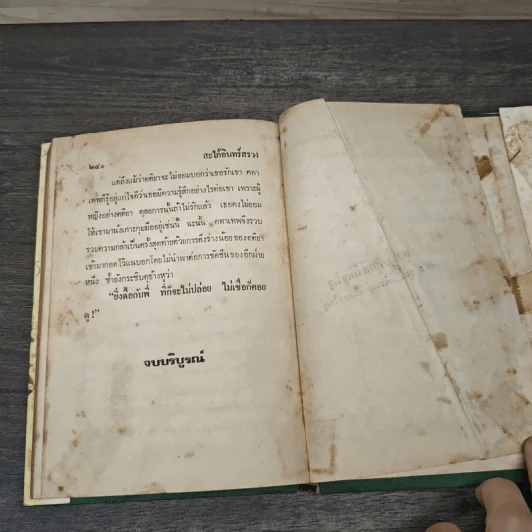 ๒๔๐
สะใภ้อินทร์สรวง
แต่ถึงแม้ว่าคติยาจะไม่ยอมบอกว่าเธอรักเขา คทา
เทพก็รู้อยู่แก่ใจดีว่าเธอมีความรู้สึกอย่างไรต่อเขา เพราะผู้
หญิงอย่างคติยา ดุลยการนั้นถ้าไม่รักแล้ว เธอคงไม่ยอม
ให้เขามานั่งเกาะกุมมืออยู่เช่นนี้ ฉะนั้น คทาเทพจึงรวบ
รวมความกล้าเป็นครั้งสุดท้ายด้วยการดึงร่างน้อยของคติยา
เข้ามากอดไว้แนบอกโดยไม่นำพาต่อการขัดขืนของอีกฝ่าย
หนึ่ง ซ้ำยังกระซิบดุข้างหูว่า
"ยิ่งดื้อกับพี่ พี่ก็จะไม่ปล่อย ไม่เชื่อก็คอย
ดู!"
จบบริบูรณ์